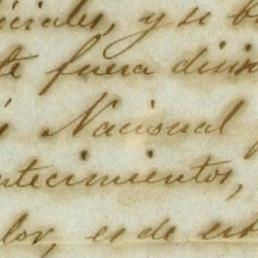 iciales, y si b
te fuera divis
i Nacional
ntecimientos,
lor, es de est